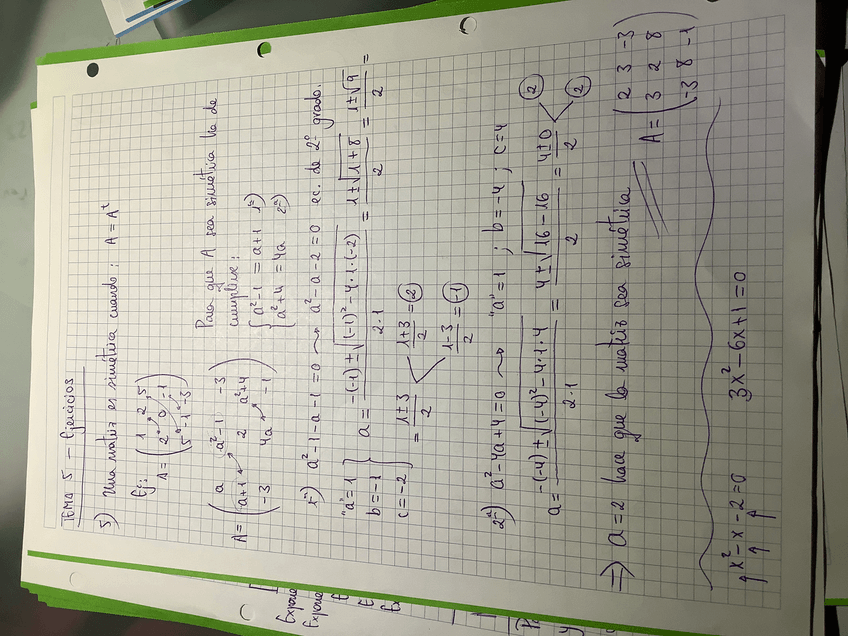 TEMA 5 - Ejercicios
5) Una matriz es simétrica cuando: A = Aᵗ
Ej: A = ( 1 2 5
2 0 -1
5 -1 -3 )
A = ( a a²-1 -3
a+1 2 a²+4
-3 4a -1 )
Para que A sea simétrica ha de
cumplirse:
{ a²-1 = a+1 1ª)
a²+4 = 4a 2ª)
1ª) a²-1-a-1=0 ⇝ a²-a-2=0 ec. de 2º grado:
"a"=1
b=-1
c=-2 }
a = (-(-1) ± √((-1)²-4·1·(-2))) / (2·1) = (1±√(1+8)) / 2 = (1±√9) / 2 =
= (1±3)/2
(1+3)/2 = 2
(1-3)/2 = -1
2ª) a²-4a+4=0 ⇝ "a"=1 ; b=-4 ; c=4
a = (-(-4) ± √((-4)²-4·1·4)) / (2·1) = (4±√(16-16)) / 2 = (4±0) / 2
2
2
⇒ a=2 hace que la matriz sea simétrica
A = ( 2 3 -3
3 2 8
-3 8 -1 )
x²-x-2=0 3x²-6x+1=0
Expone
Expone